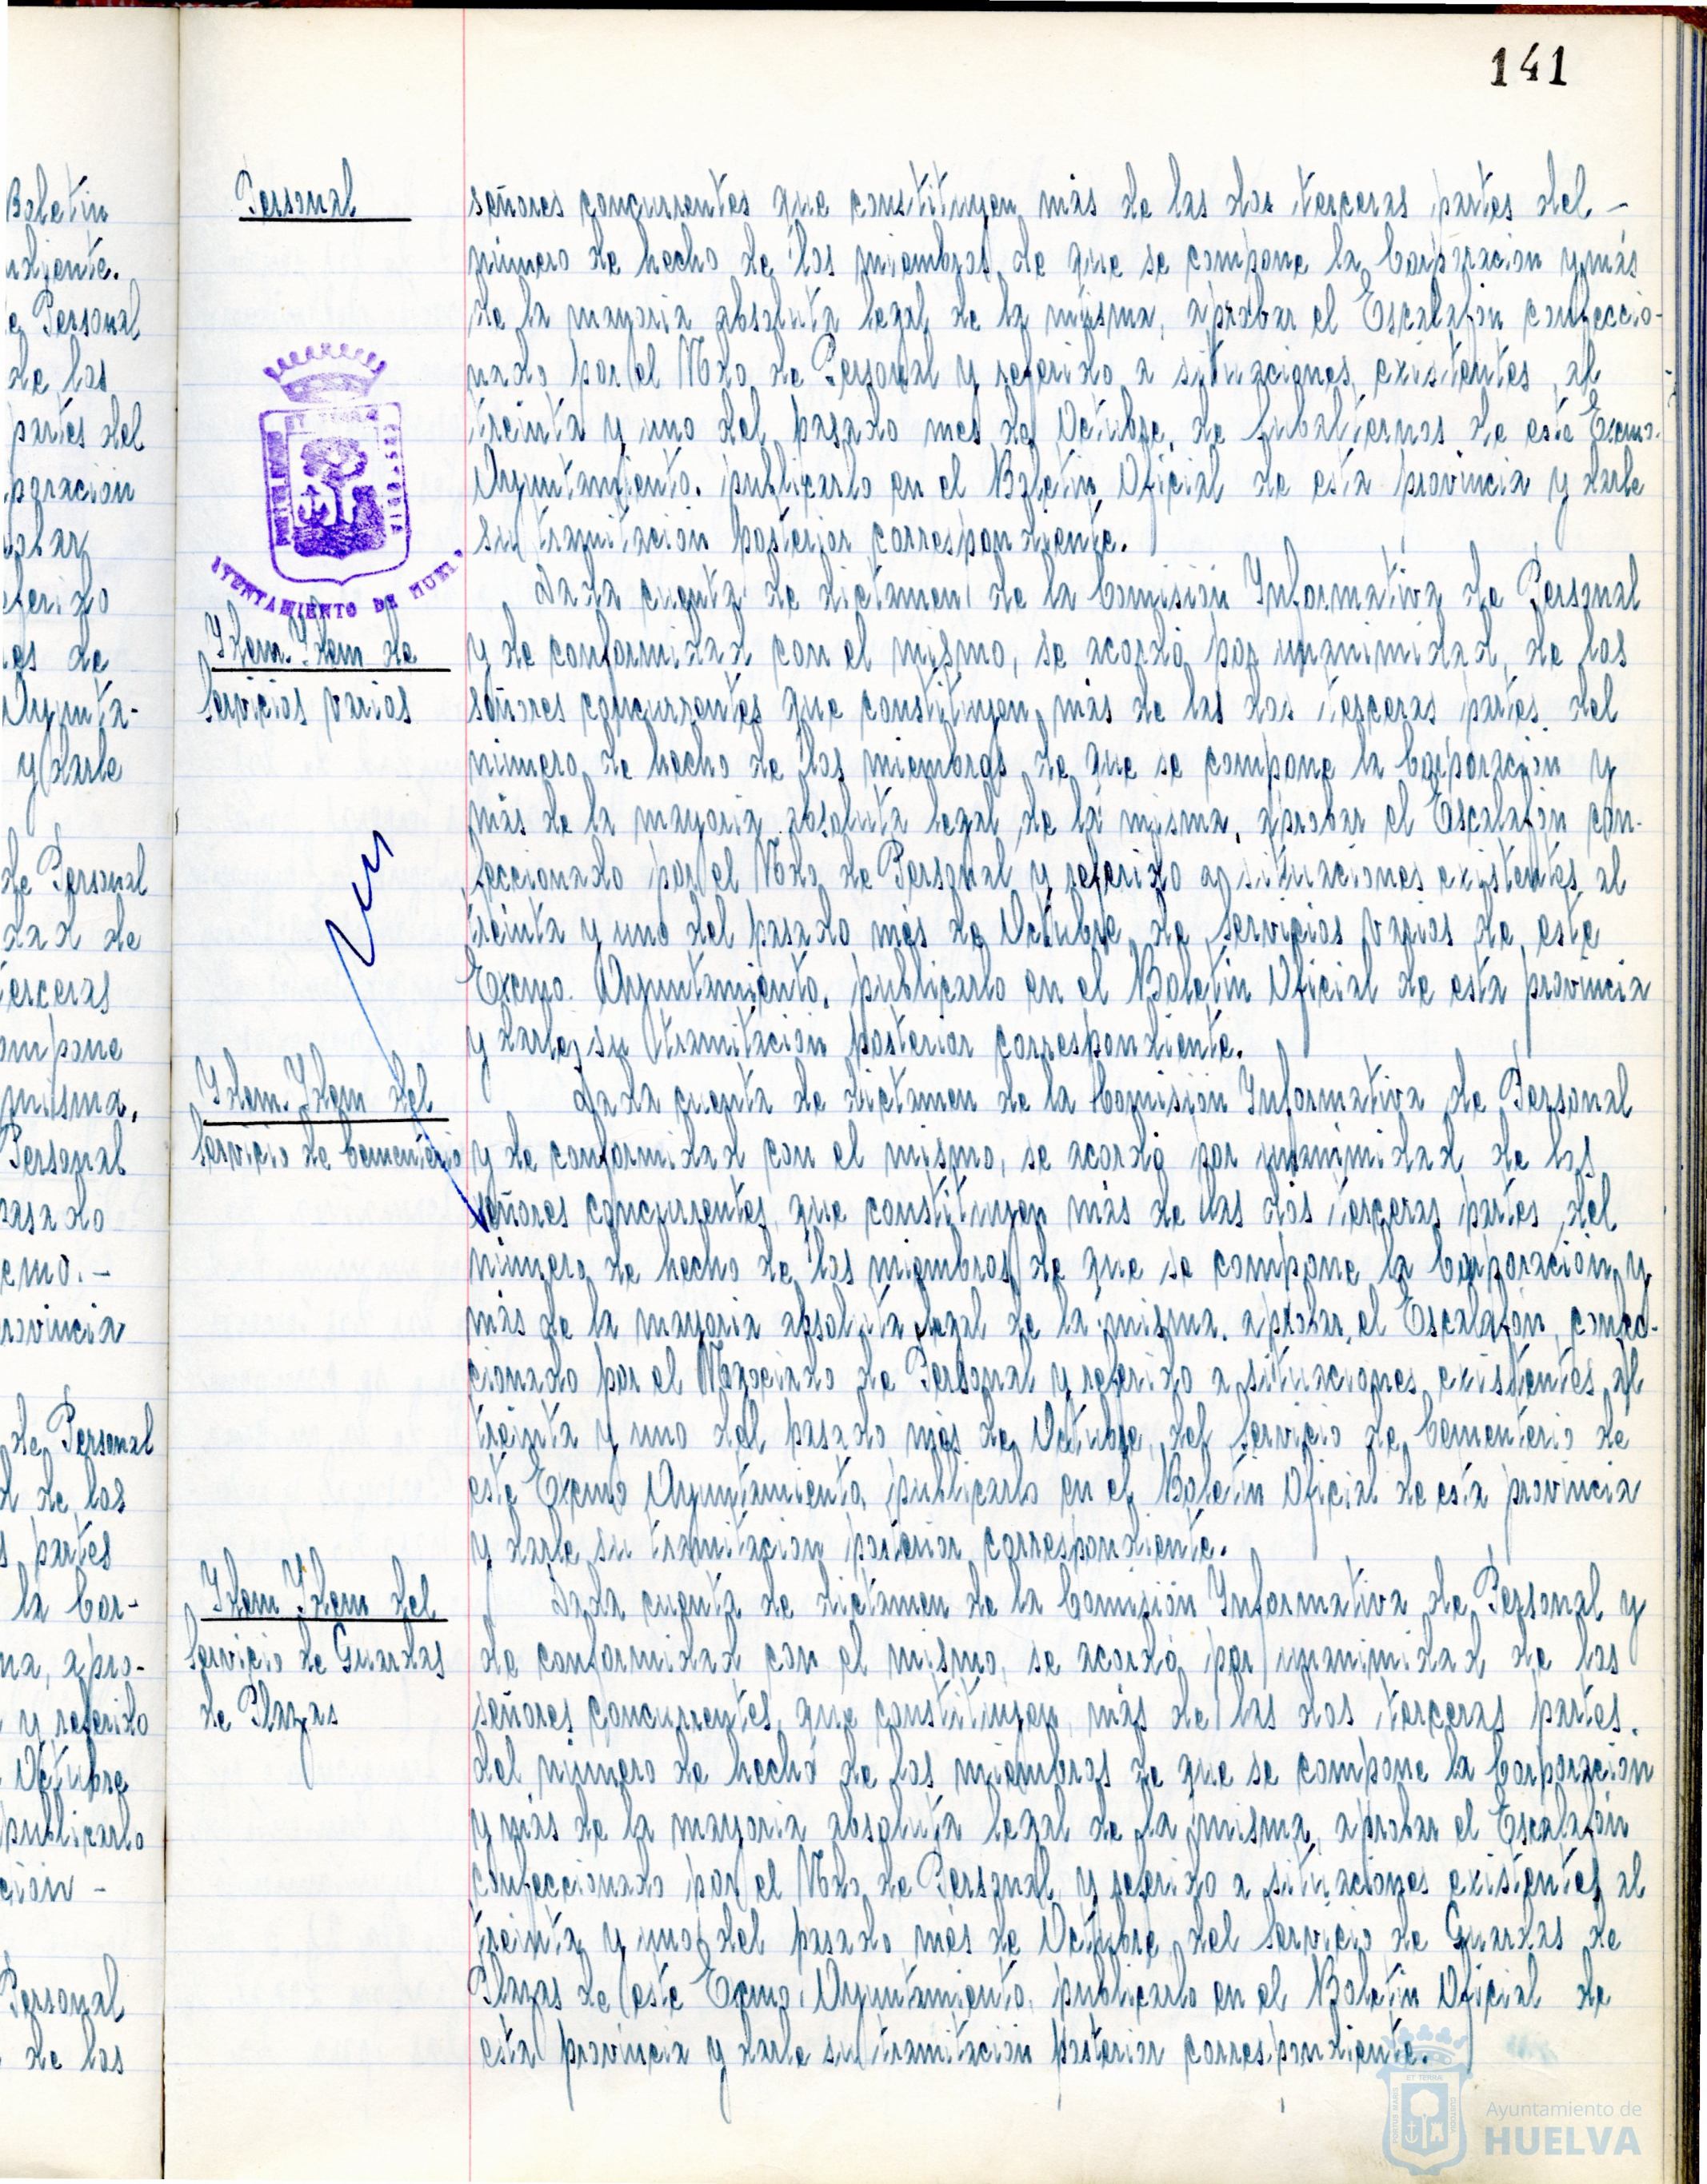 141
Boletin
ndiente.
e Personal
de los
partes del
poración
obar
eferido
es de
Ayunta-
y darle
de Personal
dad de
terceras
ompone
misma,
Personal
pasado
cmo.-
rovincia
de Personal
d de los
s partes
la Cor-
na, apro-
y referido
Octubre
publicarlo
ción -
Personal
de los
Personal
señores concurrentes que constituyen más de las dos terceras partes del -
número de hecho de los miembros de que se compone la Corporación y más
de la mayoria absoluta legal de la misma, aprobar el Escalafón confeccio-
nado por el Ngdo de Personal y referido a situaciones existentes al
treinta y uno del pasado mes de Octubre, de Subalternos de este Excmo.
Ayuntamiento, publicarlo en el Boletin Oficial de esta provincia y darle
su tramitación posterior correspondiente.
AYUNTAMIENTO DE HUELVA
Idem. Idem de
Servicios varios
Dada cuenta de dictamen de la Comisión Informativa de Personal
y de conformidad con el mismo, se acordó por unanimidad de los
señores concurrentes que constituyen más de las dos terceras partes del
número de hecho de los miembros de que se compone la Corporación y
más de la mayoria absoluta legal de la misma, aprobar el Escalafón con-
feccionado por el Ngdo de Personal y referido a situaciones existentes al
treinta y uno del pasado mes de Octubre, de Servicios varios de este
Excmo. Ayuntamiento, publicarlo en el Boletin Oficial de esta provincia
y darle su tramitación posterior correspondiente.
Idem. Idem del
Servicio de Cementerio
Dada cuenta de dictamen de la Comisión Informativa de Personal
y de conformidad con el mismo, se acordó por unanimidad de los
señores concurrentes que constituyen más de las dos terceras partes del
número de hecho de los miembros de que se compone la Corporación y
más de la mayoria absoluta legal de la misma, aprobar el Escalafón confec-
cionado por el Negociado de Personal y referido a situaciones existentes al
treinta y uno del pasado mes de Octubre, del Servicio de Cementerio de
este Excmo Ayuntamiento, publicarlo en el Boletin Oficial de esta provincia
y darle su tramitación posterior correspondiente.
Idem Idem del
Servicio de Guardas
de Plazas
Dada cuenta de dictamen de la Comisión Informativa de Personal y
de conformidad con el mismo, se acordó por unanimidad de los
señores concurrentes que constituyen más de las dos terceras partes
del número de hecho de los miembros de que se compone la Corporación
y más de la mayoria absoluta legal de la misma, aprobar el Escalafón
confeccionado por el Ngdo de Personal y referido a situaciones existentes al
treinta y uno del pasado mes de Octubre, del Servicio de Guardas de
Plazas de este Excmo. Ayuntamiento, publicarlo en el Boletin Oficial de
esta provincia y darle su tramitación posterior correspondiente.
Ayuntamiento de
HUELVA